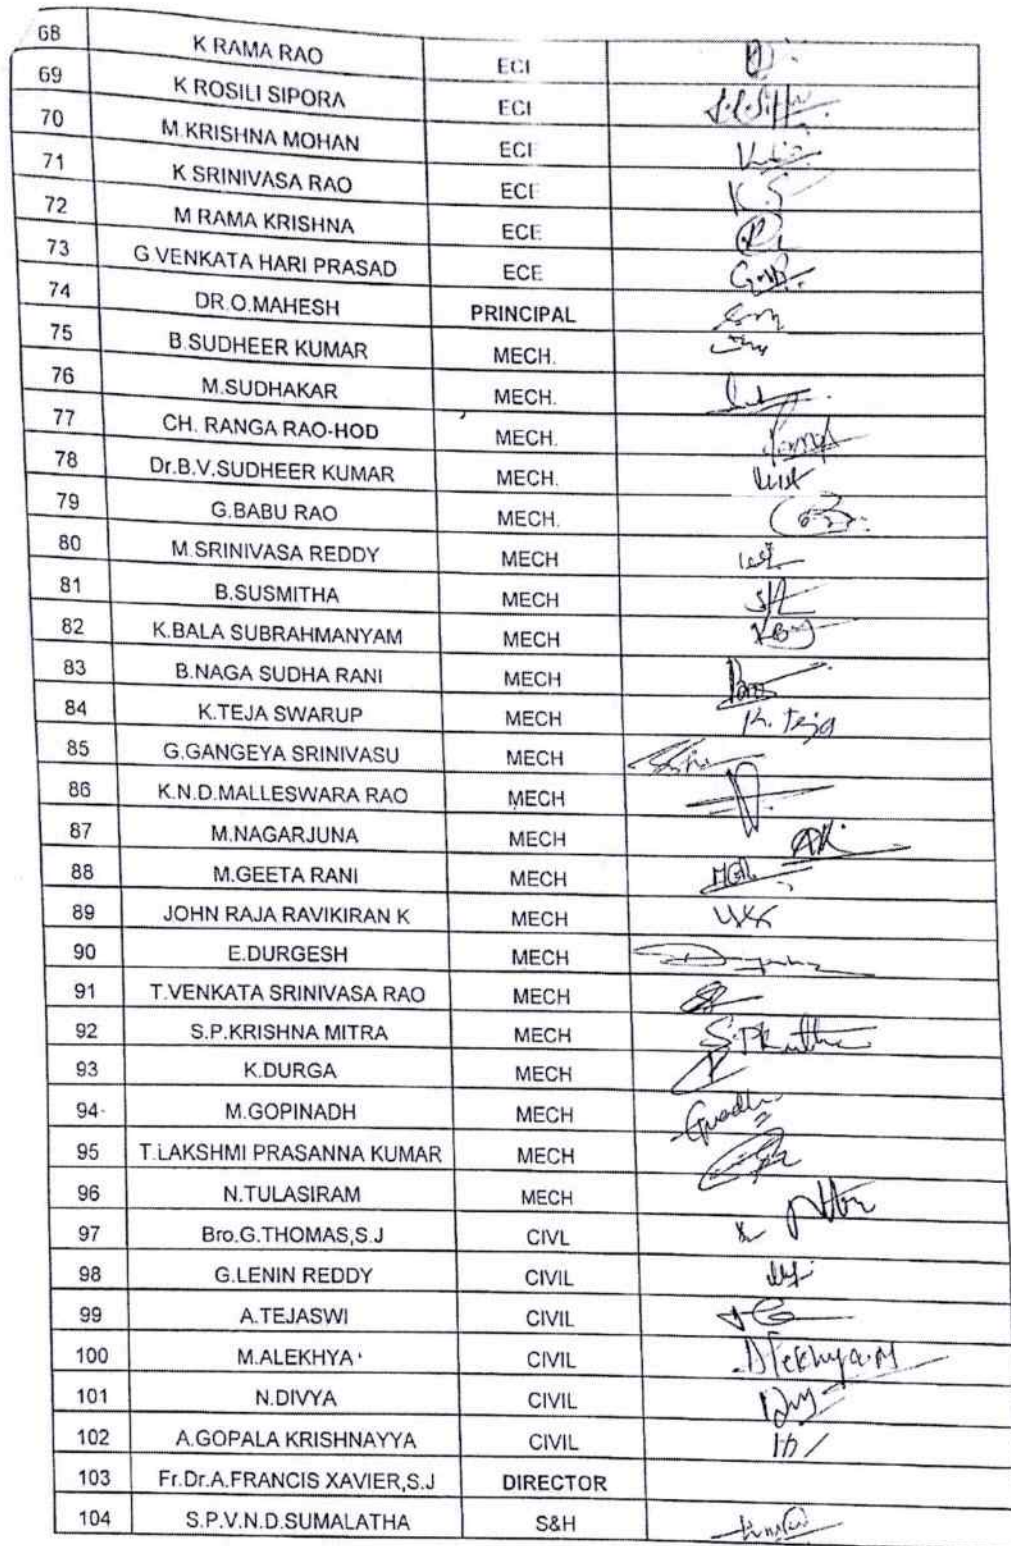 68 K RAMA RAO ECE
69 K ROSILI SIPORA ECE
70 M.KRISHNA MOHAN ECE
71 K SRINIVASA RAO ECE
72 M RAMA KRISHNA ECE
73 G.VENKATA HARI PRASAD ECE
74 DR.O.MAHESH PRINCIPAL
75 B.SUDHEER KUMAR MECH.
76 M.SUDHAKAR MECH.
77 CH. RANGA RAO-HOD MECH.
78 Dr.B.V.SUDHEER KUMAR MECH.
79 G.BABU RAO MECH.
80 M.SRINIVASA REDDY MECH
81 B.SUSMITHA MECH
82 K.BALA SUBRAHMANYAM MECH
83 B.NAGA SUDHA RANI MECH
84 K.TEJA SWARUP MECH K. Teja
85 G.GANGEYA SRINIVASU MECH
86 K.N.D.MALLESWARA RAO MECH
87 M.NAGARJUNA MECH
88 M.GEETA RANI MECH
89 JOHN RAJA RAVIKIRAN K MECH
90 E.DURGESH MECH
91 T.VENKATA SRINIVASA RAO MECH
92 S.P.KRISHNA MITRA MECH
93 K.DURGA MECH
94 M.GOPINADH MECH
95 T.LAKSHMI PRASANNA KUMAR MECH
96 N.TULASIRAM MECH
97 Bro.G.THOMAS,S.J CIVL
98 G.LENIN REDDY CIVIL
99 A.TEJASWI CIVIL
100 M.ALEKHYA CIVIL Alekhya.M
101 N.DIVYA CIVIL
102 A.GOPALA KRISHNAYYA CIVIL
103 Fr.Dr.A.FRANCIS XAVIER,S.J DIRECTOR
104 S.P.V.N.D.SUMALATHA S&H